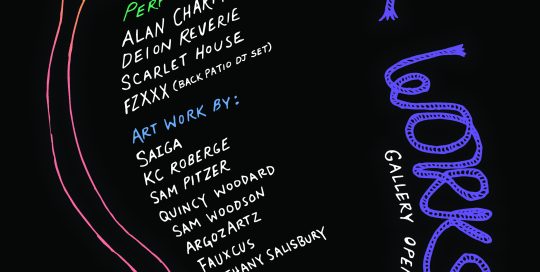 ALAN
DEION REVERIE
SCARLET HOUSE
FZXXX (BACK PATIO DJ SET)
ART WORK BY:
SAIGA
KC ROBERGE
SAM PITZER
QUINCY WOODARD
SAM WOODSON
ARGOZARTZ
FAUXCUS
SALISBURY
WORKS
GALLERY